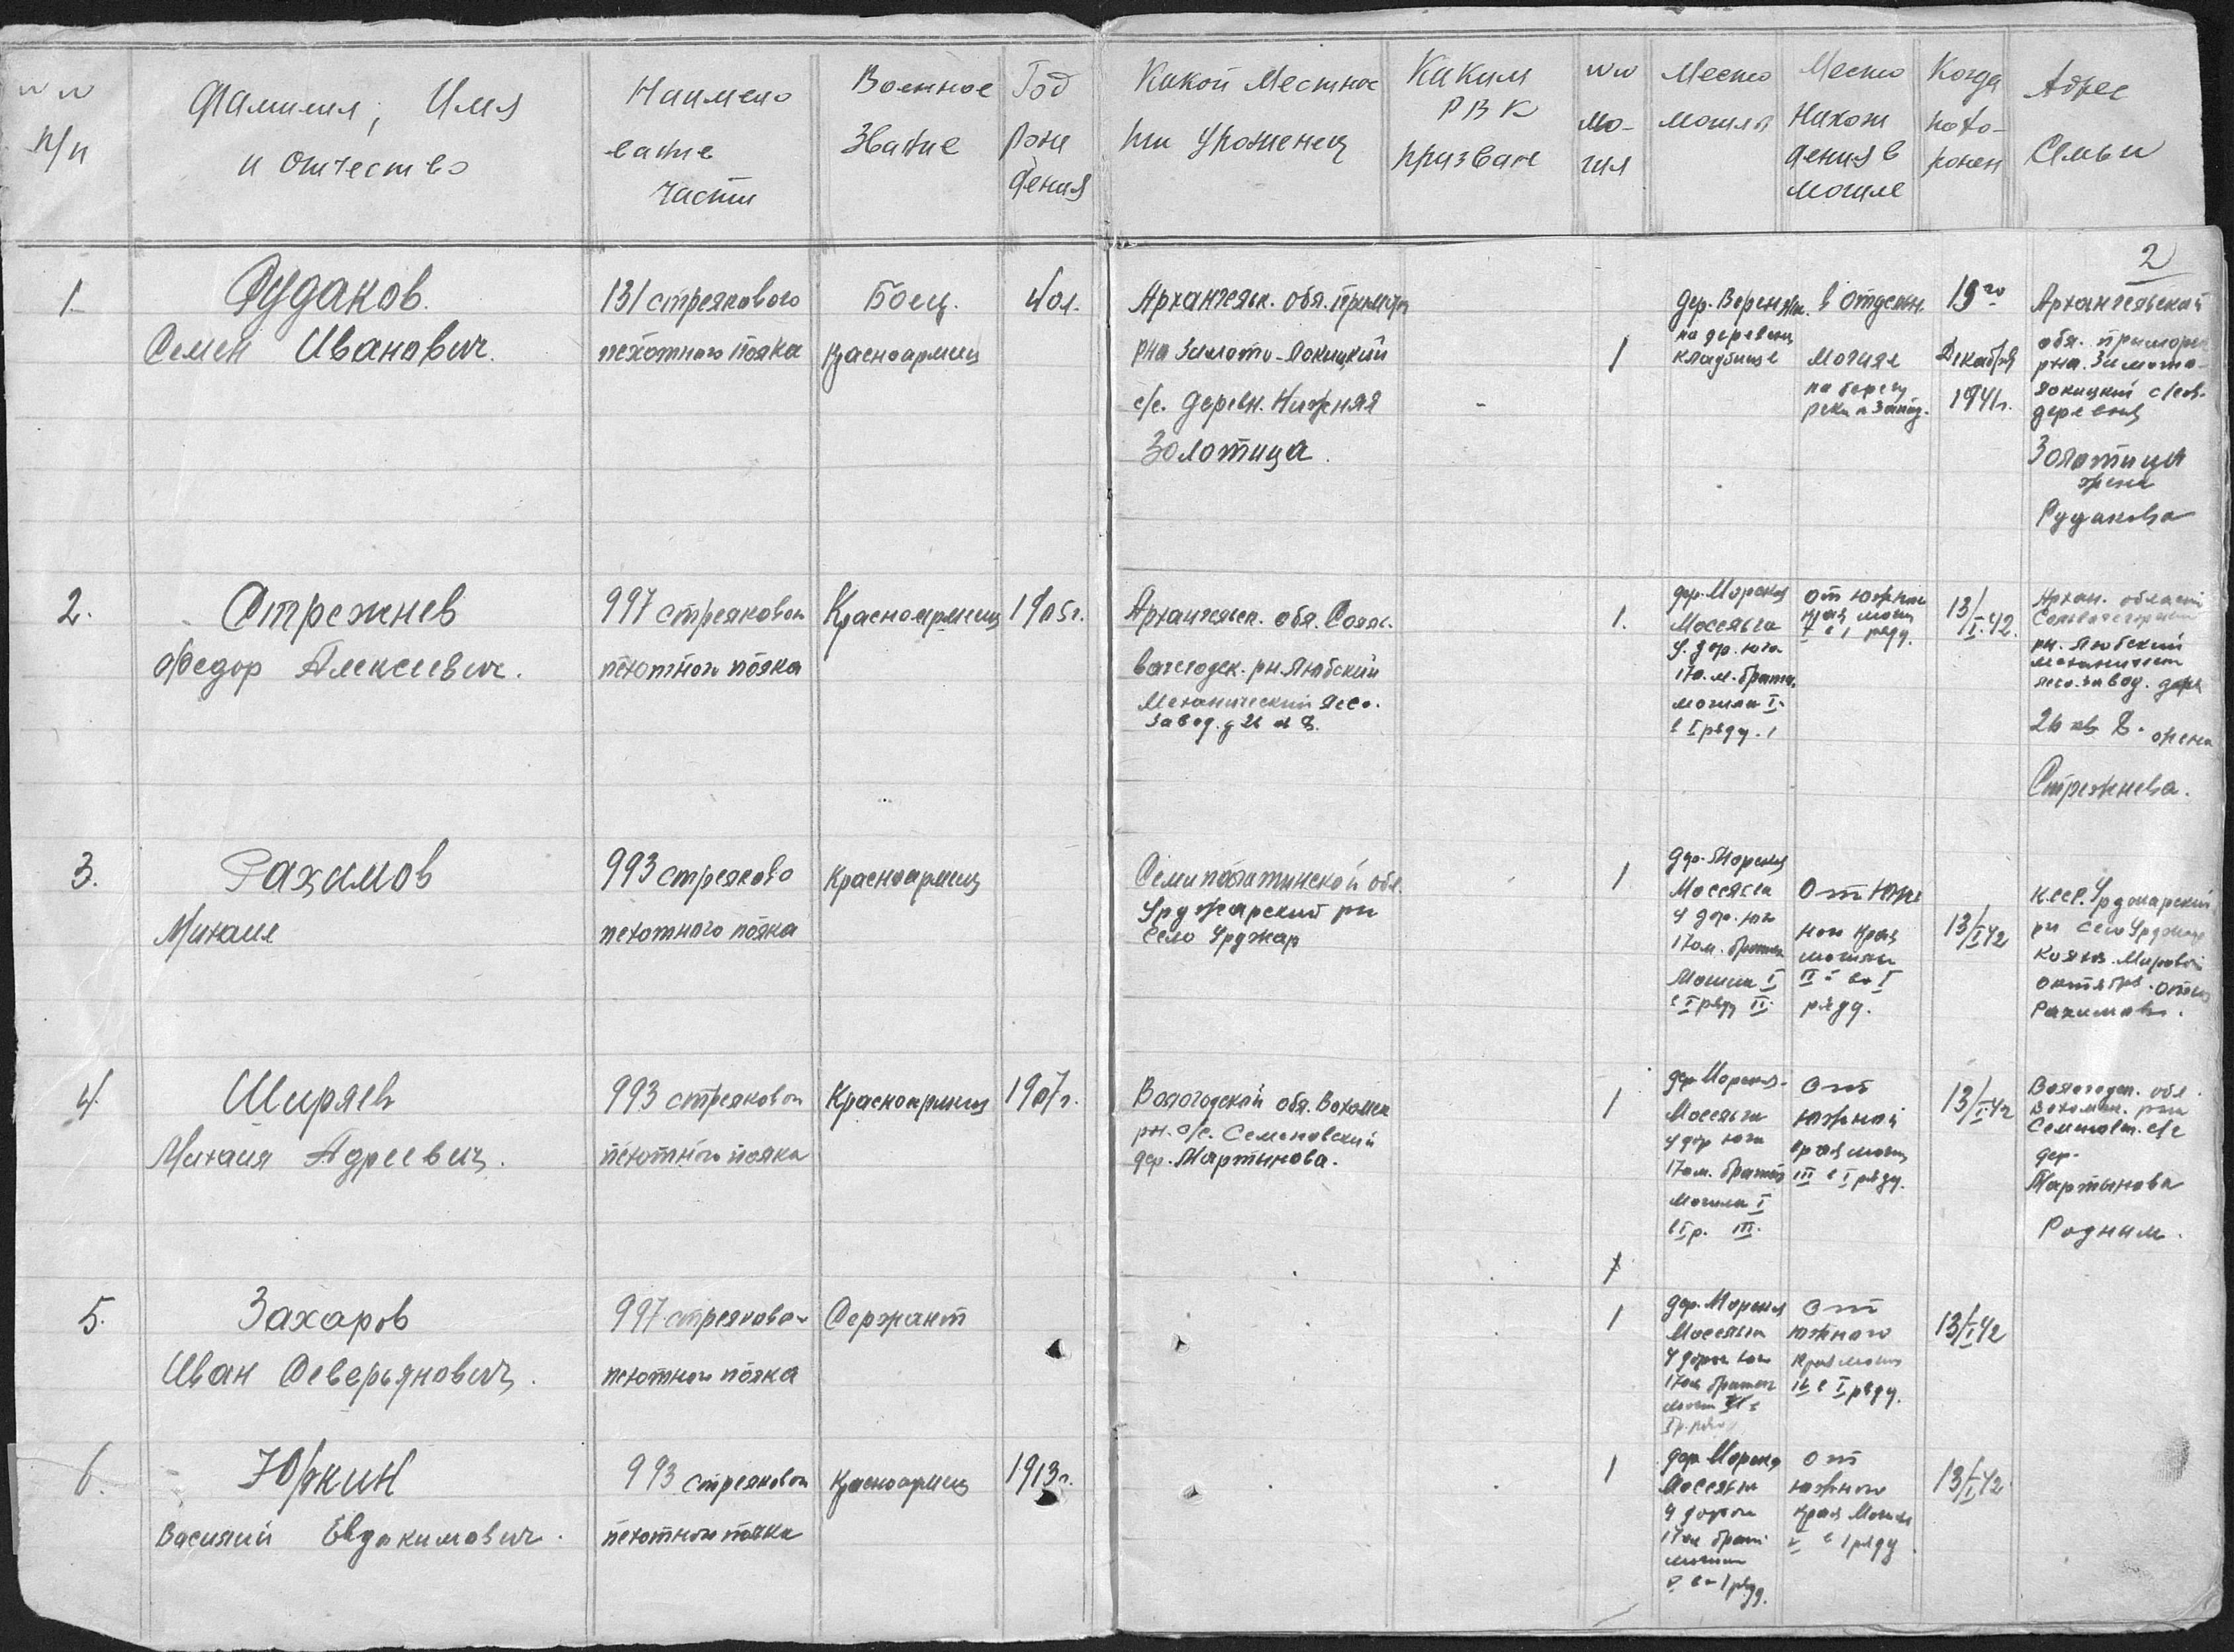 №№ п/п
Фамилия, Имя и отчество
Наимено вание части
Военное Звание
Год рож дения
Какой Местнос ти Уроженец
Каким РВК призван
№№ мо- гил
Место могилы
Место Нахож дения в могиле
Когда похо- ронен
Адрес Семьи
2
1
Рудаков
Семен Иванович.
131 стрелкового
пехотного полка
Боец.
Красноармеец
Архангельск. обл. Приморск
рна Зимото-Золицкий
с/с. деревн. Нижняя
Золотица.
-
1
дер. Веренж.
на деревен
кладбище
в отдельн.
могиле
на берегу
реки п Запад.
19го
Декабря
1941г.
Архангельской
обл. приморск
рна. Зимото-
золицкий с/сов.
деревня
Золотица
жена
Рудакова
2.
Стрежнев
Федор Алексеевич.
997 стрелковой
пехотного полка
Красноармеец
1905г.
Архангельск. обл. Сольв.
вычегодск. рн. Любский
Механический лесо.
Завод. д 26 кв 8.
1.
дер. Морские
Моссельга
у. дор. юга
170.м. братск.
могила I.
в I ряду. 1
от южной
края могил
I в 1 ряду.
13/I.42.
Архан. области
рн. Любский
механический
лесо.завод. дом
26 кв 8. жена
Стрежнева.
3.
Рахимов
Михаил
993 стрелково
пехотного полка
Красноармеец
Семипалатинской обл.
Урджарский рн
село Урджар
1
дер. Морские
Моссельга
у дор. юга
170м. братск
Могила I
в I ряду II.
От Юж
ной края
могилы
II й во I
ряду.
13/I 42
К.ССР. Урджарский
рн село Урджар
Колхоз. Мировой
октябрь. отец
Рахимов.
4.
Ширяев
Михаил Адреевич.
993 стрелковой
пехотного полка
Красноармеец
1907г.
Вологодской обл. Вохомск
рн. с/с. Семеновский
дер. Мартынова.
1
дер Морские-
Моссельга
у дор юга
170м. братск
Могила I
в I р. III.
От
южной
края могил
III в I ряду.
13/I 42
Вологодск. обл.
Вохомск. рна
Семеновск. с/с
дер.
Мартынова
Родным.
1
5.
Захаров
Иван Северьянович.
997 стрелковой
пехотного полка
Сержант
1
дер. Морские
Моссельга
у дороги юга
170м братск
От
южного
края могил
IV в I ряду.
13/I 42
6.
Юркин
Василий Евдокимович.
993 стрелковой
пехотного полка
Красноармеец
1913г.
1
дер Морские
Моссельга
у дороги
170м братс
могила
V во I ряду.
От
южного
края Могил
V в 1 ряду.
13/I 42